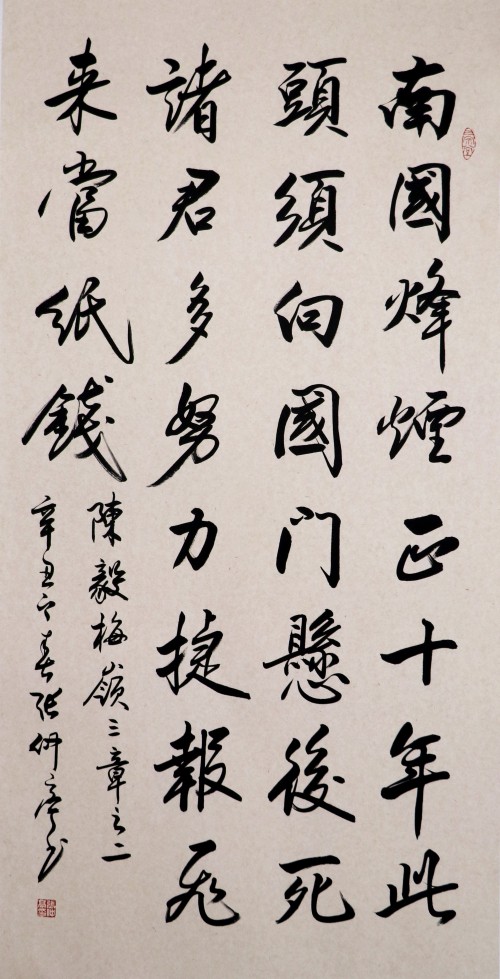 南國烽煙正十年此
頭須向國门懸後死
諸君多努力捷報飛
来當紙錢
陳毅梅嶺三章之二
辛丑之春张书